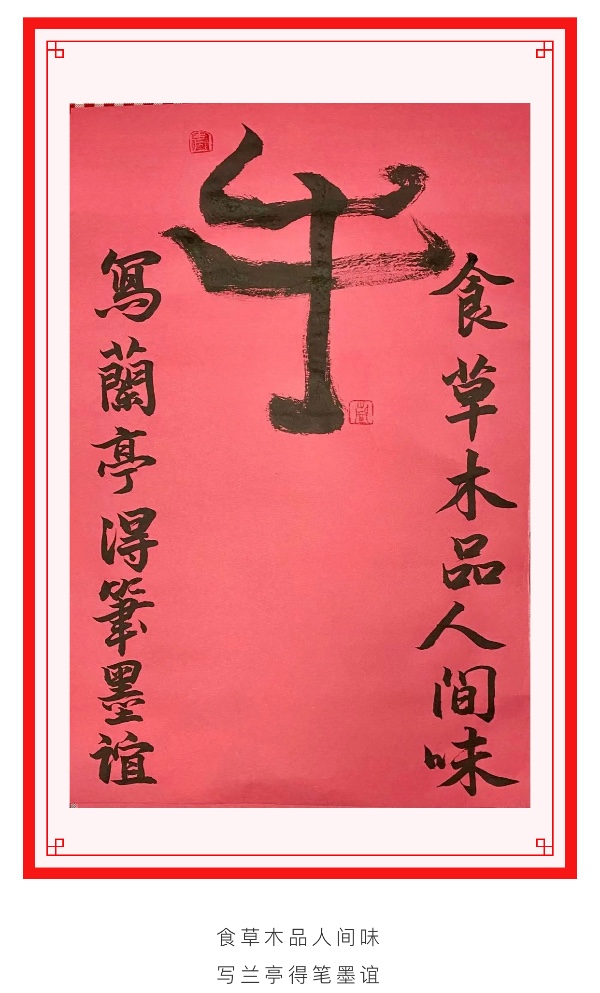 牛
食草木品人间味
寫蘭亭得筆墨誼
食草木品人间味
写兰亭得笔墨谊